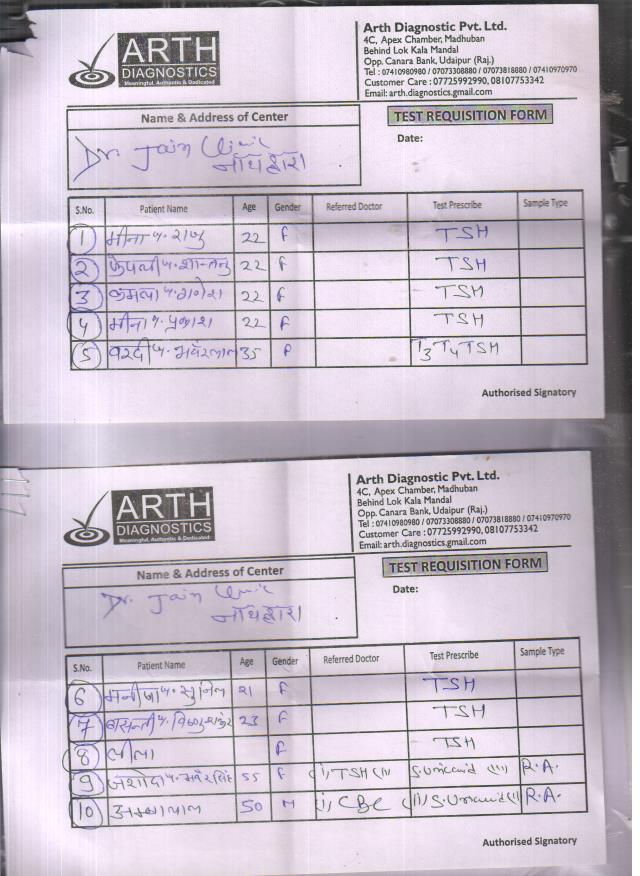 ARTH
DIAGNOSTICS
Meaningful, Authentic & Dedicated
Arth Diagnostic Pvt. Ltd.
4C, Apex Chamber, Madhuban
Behind Lok Kala Mandal
Opp. Canara Bank, Udaipur (Raj.)
Tel : 07410980980 / 07073308880 / 07073818880 / 07410970970
Customer Care : 07725992990, 08107753342
Email: arth.diagnostics.gmail.com
Name & Address of Center
TEST REQUISITION FORM
Date:
Dr. Jain Clinic
नाथद्वारा
S.No. Patient Name Age Gender Referred Doctor Test Prescribe Sample Type
1 मीना प. राजु 22 F TSH
2 प. शान्तनु 22 F TSH
3 कमला प. गणेश 22 F TSH
4 मीना प. प्रकाश 22 F TSH
5 वरदी प. भवँरलाल 35 F T3 T4 TSH
Authorised Signatory
ARTH
DIAGNOSTICS
Meaningful, Authentic & Dedicated
Arth Diagnostic Pvt. Ltd.
4C, Apex Chamber, Madhuban
Behind Lok Kala Mandal
Opp. Canara Bank, Udaipur (Raj.)
Tel : 07410980980 / 07073308880 / 07073818880 / 07410970970
Customer Care : 07725992990, 08107753342
Email: arth.diagnostics.gmail.com
Name & Address of Center
TEST REQUISITION FORM
Date:
Dr. Jain Clinic
नाथद्वारा
S.No. Patient Name Age Gender Referred Doctor Test Prescribe Sample Type
6 प. सुनिल 21 F TSH
7 बसन्ती प. 23 F TSH
8 लीला F TSH
9 जशोदा प. 55 F (i) TSH (ii) S. Uricacid (iii) R.A.
10 अम्बालाल 50 M (i) CBC (ii) S. Uricacid (iii) R.A.
Authorised Signatory